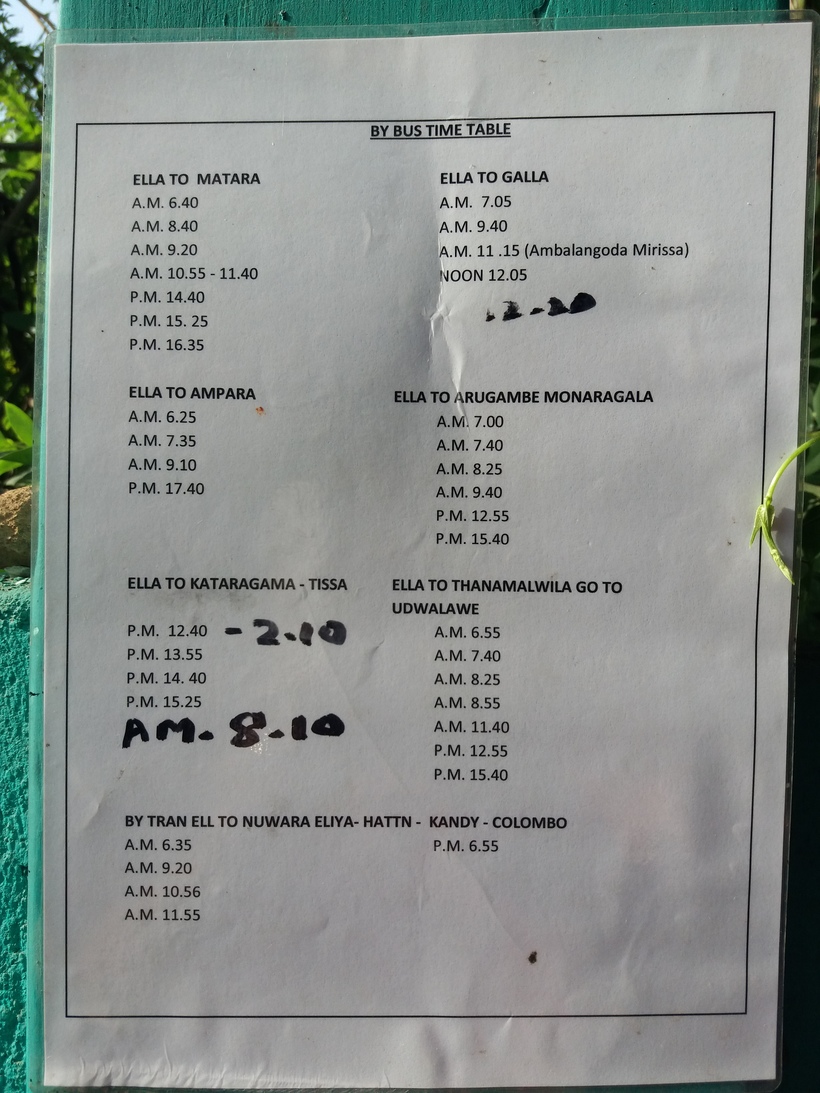 BY BUS TIME TABLE
ELLA TO MATARA
A.M. 6.40
A.M. 8.40
A.M. 9.20
A.M. 10.55 - 11.40
P.M. 14.40
P.M. 15. 25
P.M. 16.35
ELLA TO GALLA
A.M. 7.05
A.M. 9.40
A.M. 11 .15 (Ambalangoda Mirissa)
NOON 12.05
ELLA TO AMPARA
A.M. 6.25
A.M. 7.35
A.M. 9.10
P.M. 17.40
ELLA TO ARUGAMBE MONARAGALA
A.M. 7.00
A.M. 7.40
A.M. 8.25
A.M. 9.40
P.M. 12.55
P.M. 15.40
ELLA TO KATARAGAMA - TISSA
P.M. 12.40 - 2.10
P.M. 13.55
P.M. 14. 40
P.M. 15.25
AM. 8.10
ELLA TO THANAMALWILA GO TO
UDWALAWE
A.M. 6.55
A.M. 7.40
A.M. 8.25
A.M. 8.55
A.M. 11.40
P.M. 12.55
P.M. 15.40
BY TRAN ELL TO NUWARA ELIYA- HATTN - KANDY - COLOMBO
A.M. 6.35
A.M. 9.20
A.M. 10.56
A.M. 11.55
P.M. 6.55